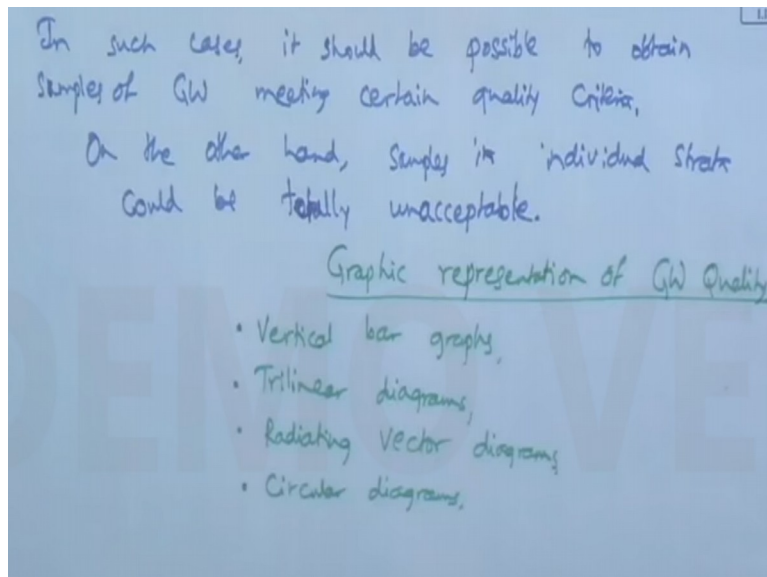 In such cases, it should be possible to obtain
Samples of GW meeting certain quality Criteria.
On the other hand, Samples in individual Strata
Could be totally unacceptable.
Graphic representation of GW Quality
• Vertical bar graphs,
• Trilinear diagrams,
• Radiating Vector diagrams
• Circular diagrams.
DEMO VE